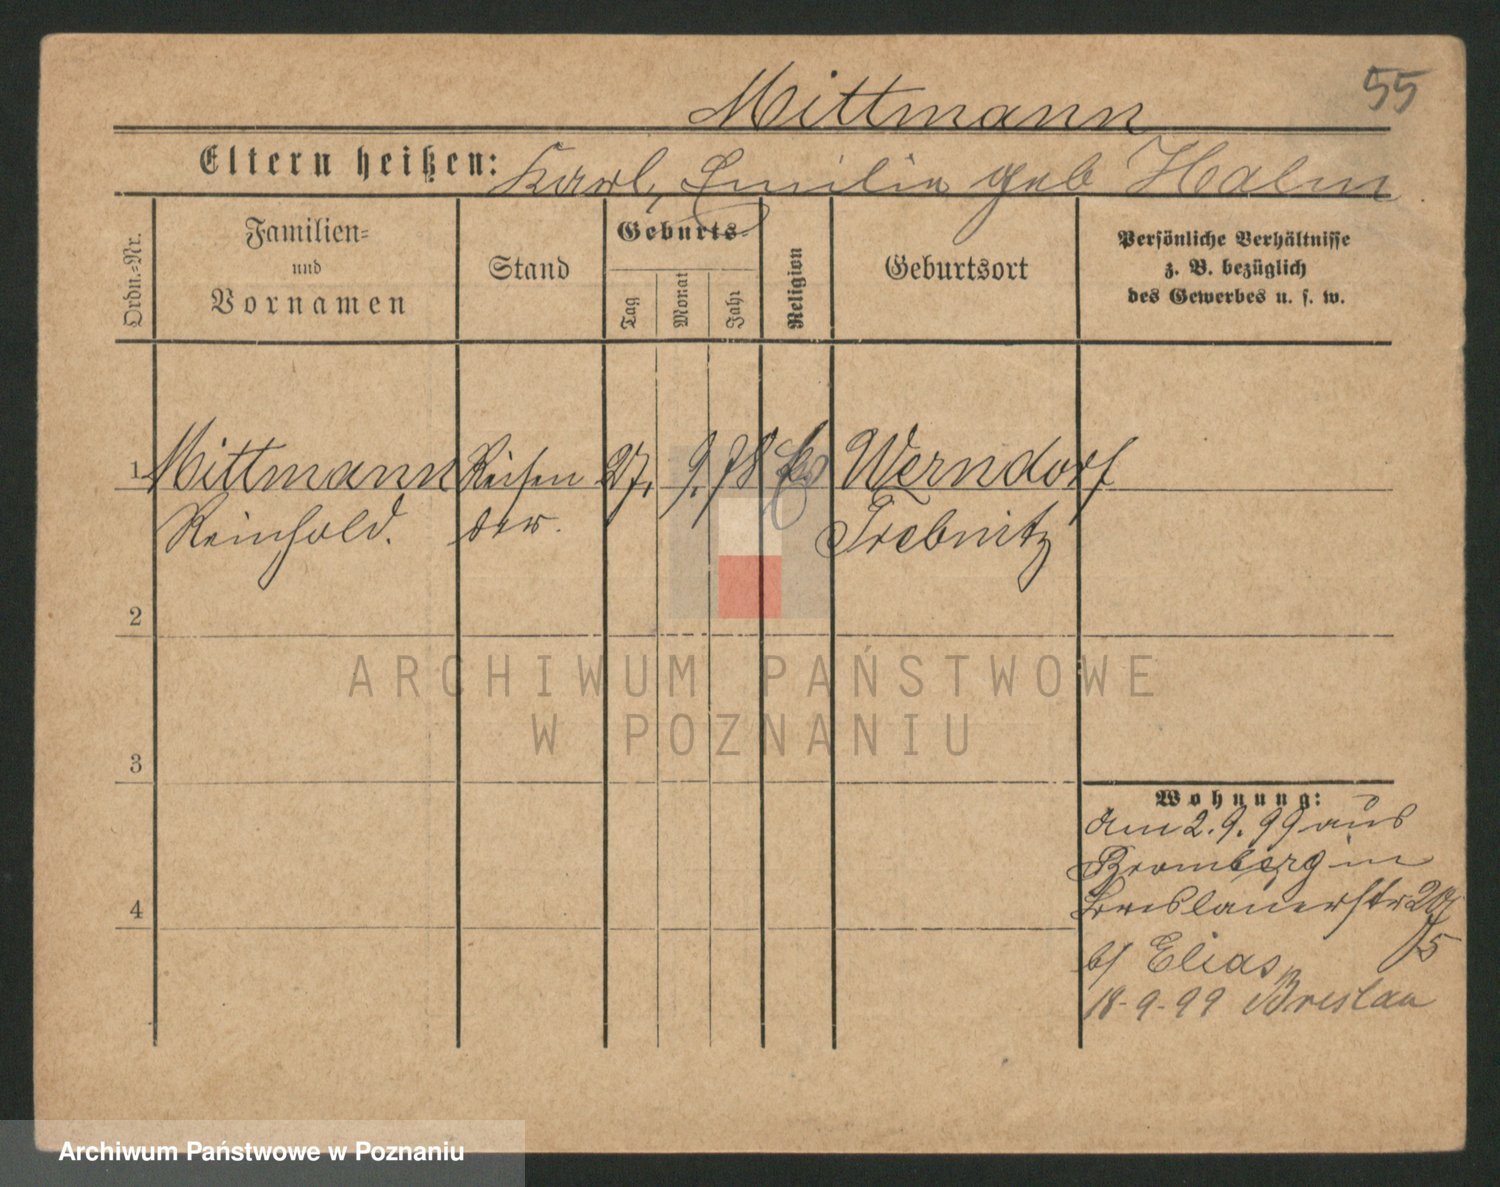 Mittmann
55
Eltern heißen: Karl, Emilie geb Halm
Ordn.=Nr.
Familien=
und
Vornamen
Stand
Geburts=
Tag
Monat
Jahr
Religion
Geburtsort
Persönliche Verhältnisse
z. B. bezüglich
des Gewerbes u. s. w.
1 Mittmann Reisen 27. 9. 78 Werndorf
Reinhold. der. Trebnitz
2
ARCHIWUM PAŃSTWOWE
W POZNANIU
3
Wohnung:
am 2. 9. 99 aus
Bromberg in
Breslauerstr 20
b/ Elias
18-9-99 Breslau
4
Archiwum Państwowe w Poznaniu